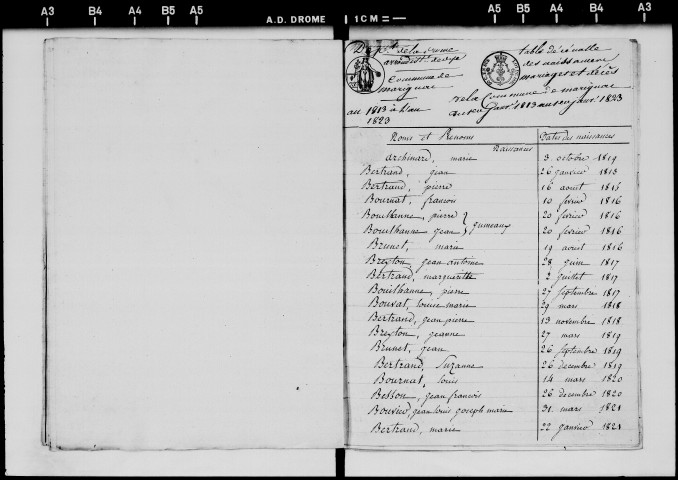 A3 B4 A4 B5 A5 A.D. DROME 1 CM A5 B5 A4 B4 A3
Dept. de la Drome
arrondisst. de Dye
Commune de
marignac
au 1813 à l'an
1823
table décénalle
des naissances
mariages et décès
de la Commune de marignac
janvr. 1813 au janvr. 1823
Noms et Prenoms Dates des naissances
Naissances
archinard, marie 3 octobre 1819
Bertrand, jean 26 janvier 1813
Bertrand, pierre 16 aout 1815
Bournat, francois 10 fevrier 1816
Bouilhanne, pierre 20 fevrier 1816
Bouilhanne jean } jumeaux 20 fevrier 1816
Brunet, marie 19 avril 1816
Breyton jean antoine 28 juin 1817
Bertrand, margueritte 2 juillet 1817
Bouilhanne, pierre 27 septembre 1817
Bouvat, louise marie 29 mars 1818
Bertrand, jean pierre 13 novembre 1818
Breyton, jeanne 27 mars 1819
Brunet, jean 26 septembre 1819
Bertrand, Suzanne 26 decembre 1819
Bournat, louis 14 mars 1820
Besson, jean francois 26 decembre 1820
Bouvier, jean louis joseph marie 31 mars 1821
Bertrand, marie 22 janvier 1821